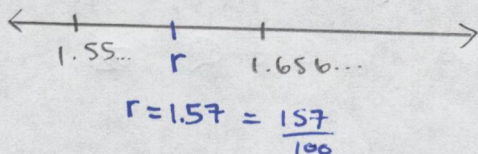 1.55... r 1.656...
r = 1.57 = 157/100